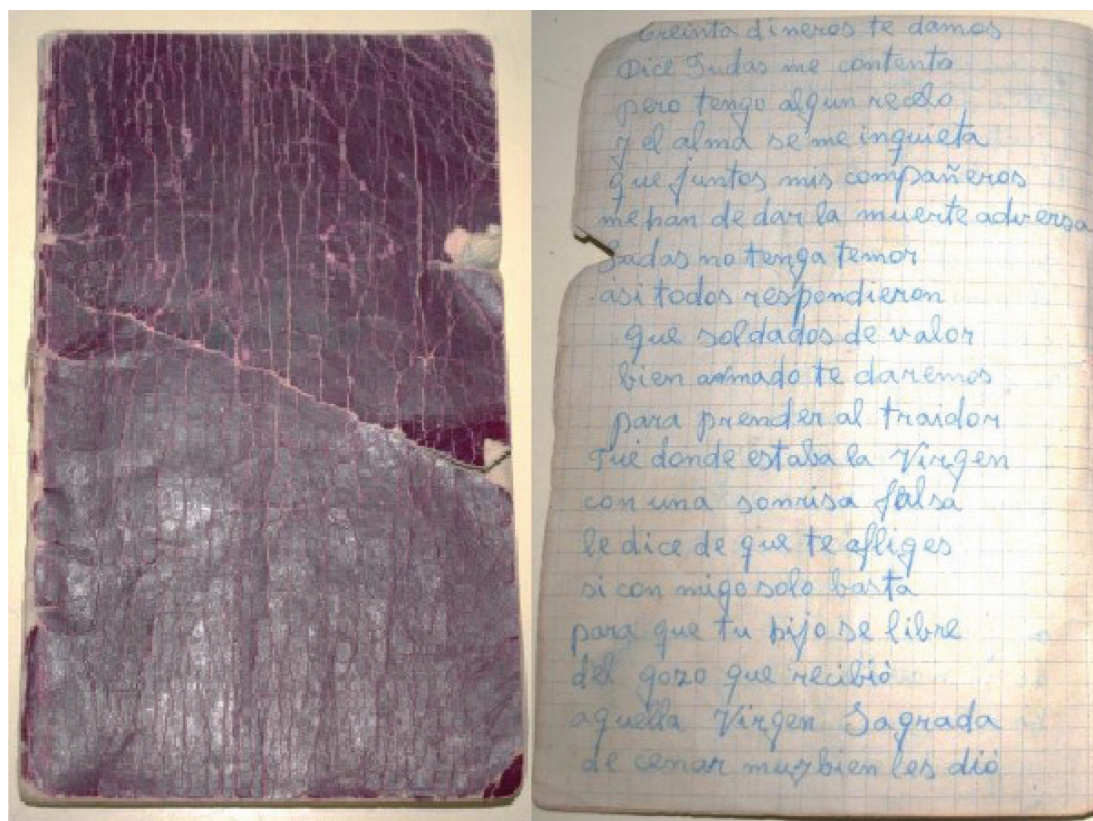 treinta dineros te damos
Dice Judas me contento
pero tengo algun recelo
y el alma se me inquieta
que juntos mis compañeros
me han de dar la muerte adversa
Judas no tenga temor
asi todos respondieron
que soldados de valor
bien armado te daremos
para prender al traidor
Fué donde estaba la Virgen
con una sonrisa falsa
le dice de que te afliges
si con migo solo basta
para que tu hijo se libre
del gozo que recibió
aquella Virgen Sagrada
de cenar muy bien les dió